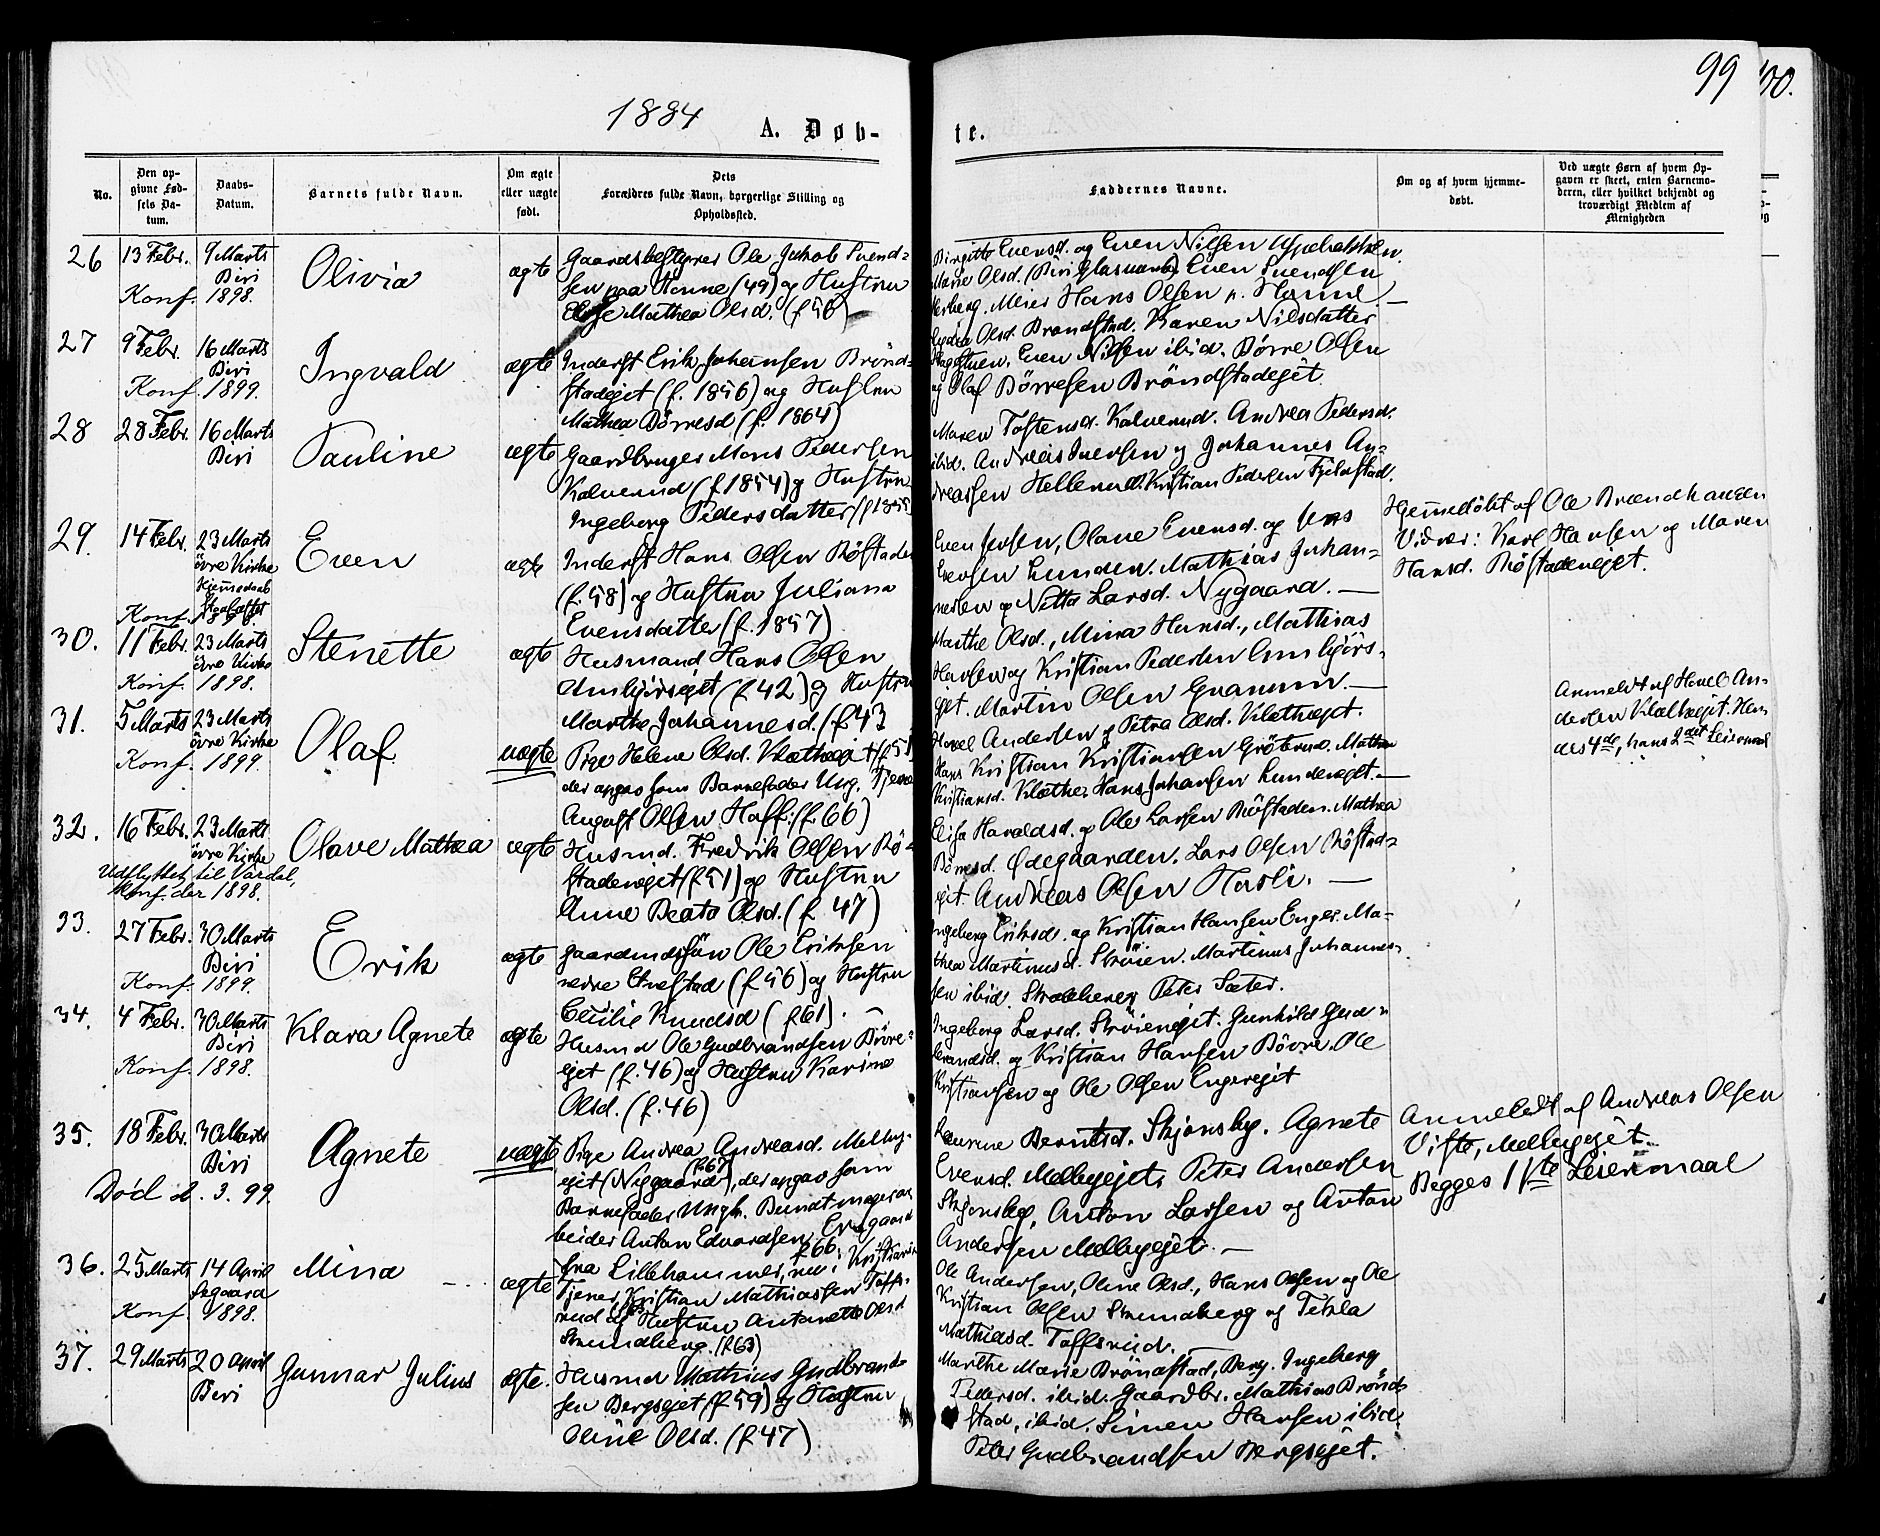 1884
A. Døb-
te.
99
100.
No.
Den op-
givne Fød-
sels Da-
tum.
Daabs-
Datum.
Barnets fulde Navn.
Om ægte
eller uægte
født.
Dets
Forældres fulde Navn, borgerlige Stilling og
Opholdssted.
Faddernes Navne.
Om og af hvem hjemme-
døbt.
Ved uægte Børn af hvem Op-
gaven er skeet, enten Barnemo-
deren, eller hvilket bekjendt og
troværdigt Medlem af
Menigheden
26
13 Febr.
9 Marts
Biri
Konf. 1898.
Olivia
ægte
Gaardsbestyrer Ole Jakob Svend-
sen paa Honne (49) og Hustru
Mathea Olsd. (f 56)
Birgitte Evensd. og Even Nilsen
Marie Olsd. (Biri Glasværk) Even Svendsen
Meier Hans Olsen p. Honne. —
27
9 Febr.
16 Marts
Biri
Konf. 1899.
Ingvald
ægte
Inderst Erik Johansen Brönd-
stadejet (f. 1856) og Hustru
Mathea Börresd (f. 1864)
Olsd. Brøndstad. Karen Nilsdatter
Even Nilsen ibid. Börre Olsen
og Olaf Börresen Bröndstadejet.
28
28 Febr.
16 Marts
Biri
Pauline
ægte
Gaardbruger Mons Pedersen
Kalverud (f 1854) og Hustru
Ingeborg Pedersdatter (f 1855)
Maren Tostensd. Kalverud. Andrea Pedersd.
ibid. Andreas Iversen og Johannes An-
dreassen Hellerud. Kristian Pedersen Fjelstad.
29.
14 Febr.
23 Marts
övre Kirke
Hjemmedaab
Stadfæstet
Konf. 1898.
Even
ægte
Inderst Hans Olsen Röstaden
(f. 58) og Hustru Juliana
Evensdatter (f. 1857)
Even Jensen, Olave Evensd. og Jens
Evensen Lunden. Mathias Johan-
nesen og Larsd. Nygaard. —
Hjemmedöbt af Ole Brændhaugen
Vidner: Karl Hansen og Maren
Hansd. Röstadenejet.
30.
11 Febr.
23 Marts
övre Kirke
Konf. 1898.
Stenette
ægte
Husmand Hans Olsen
(f 42) og Hustru
Marthe Johannesd. (f 43
Marthe Olsd., Mina Hansd., Mathias
Hansen og Kristian Pedersen
ejet. Martin Olsen Granum. —
31.
5 Marts
23 Marts
övre Kirke
Konf. 1899.
Olaf
uægte
Pige Helene Olsd. Klæthejet (f 51
der opgav som Barnefader Ung. Tjener
August Olsen Hoff. (f. 66)
Hovel Andersen og Petra Olsd. Klæthejet.
Hans Kristian Kristiansen Gröterud. Mathea
Kristiansd. Klæthe. Hans Johansen Lundenejet. —
Anmeldt af Hovel An-
dersen Klæthejet. Hen
des 4de, hans 2det Leiermaal
32.
16 Febr.
23 Marts
övre Kirke
Udflyttet til Vardal,
Konf. der 1898.
Olave Mathea
ægte
Husmd. Fredrik Olsen Rö-
stadenejet (f 51) og Hustru
Anne Beate Olsd. (f. 47)
Elise Haraldsd. og Ole Larsen Röstaden. Mathea
Börresd. Ødegaarden. Lars Olsen Röstad-
ejet. Andreas Olsen Hasli. —
33.
27 Febr.
30 Marts
Biri
Konf. 1899.
Erik
ægte
Gaardmdsön Ole Eriksen
nedre (f 56) og Hustru
Cecilie Knudsd (f 61). —
Ingeborg Eriksd. og Kristian Hansen Enger. Ma-
thea Martinusd. Ströien. Martinus Johannes-
sen ibid. Peter Sæter.
34.
4 Febr.
30 Marts
Biri
Konf. 1898.
Klara Agnete
ægte
Husmd Ole Gudbrandsen Bövre-
ejet (f. 46) og Hustru Karine
Olsd. (f. 46)
Ingeborg Larsd. Ströienejet. Gunhild Gud-
brandsd. og Kristian Hansen Bövre. Ole
Kristiansen og Ole Olsen Engerejet
35.
18 Febr.
30 Marts
Biri
Död d. . 3. 99.
Agnete
uægte
Pige Andrea Andreasd. Melby-
ejet (Nygaard) (f. 67), der opgav som
Barnefader Ungk. Buntmagerar-
beider Anton Edvardsen
f 66.
fra Lillehammer, nu i Kristiania
Berntsd. Skjönsby. Agnete
Evensd. Melbyejet. Peter Andersen
Skjönsby, Anton Larsen og Anton
Andersen Melbyejet. —
Anmeldt af Andreas Olsen
Vifte, Melbyejet.
Begges 1ste Leiermaal
36.
25 Marts
14 April
Segaard
Konf. 1898.
Mina
ægte
Tjener Kristian Mathiassen Toffs-
rud og Hustru Antonette Olsd
(f 63)
Ole Andersen, Oline Olsd., Hans Olsen og Ole
Kristian Olsen og Tekla
Mathiasd. Toffsrud.
37.
29 Marts
20 April
Biri
Gunnar Julius
ægte.
Husmd Mathias Gudbrand-
sen Bergsejet (f 59) og Hustru
Oline Olsd. (f 47)
Marthe Marie Bröndstad, Berg. Ingeborg
Pedersd. ibid. Gaardbr. Mathias Brönd-
stad, ibid. Simen Hansen ibid.
Peter Gudbrandsen Bergsejet.